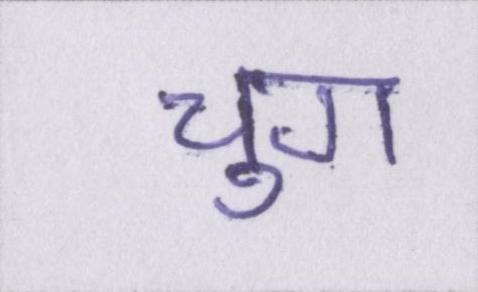 चुग